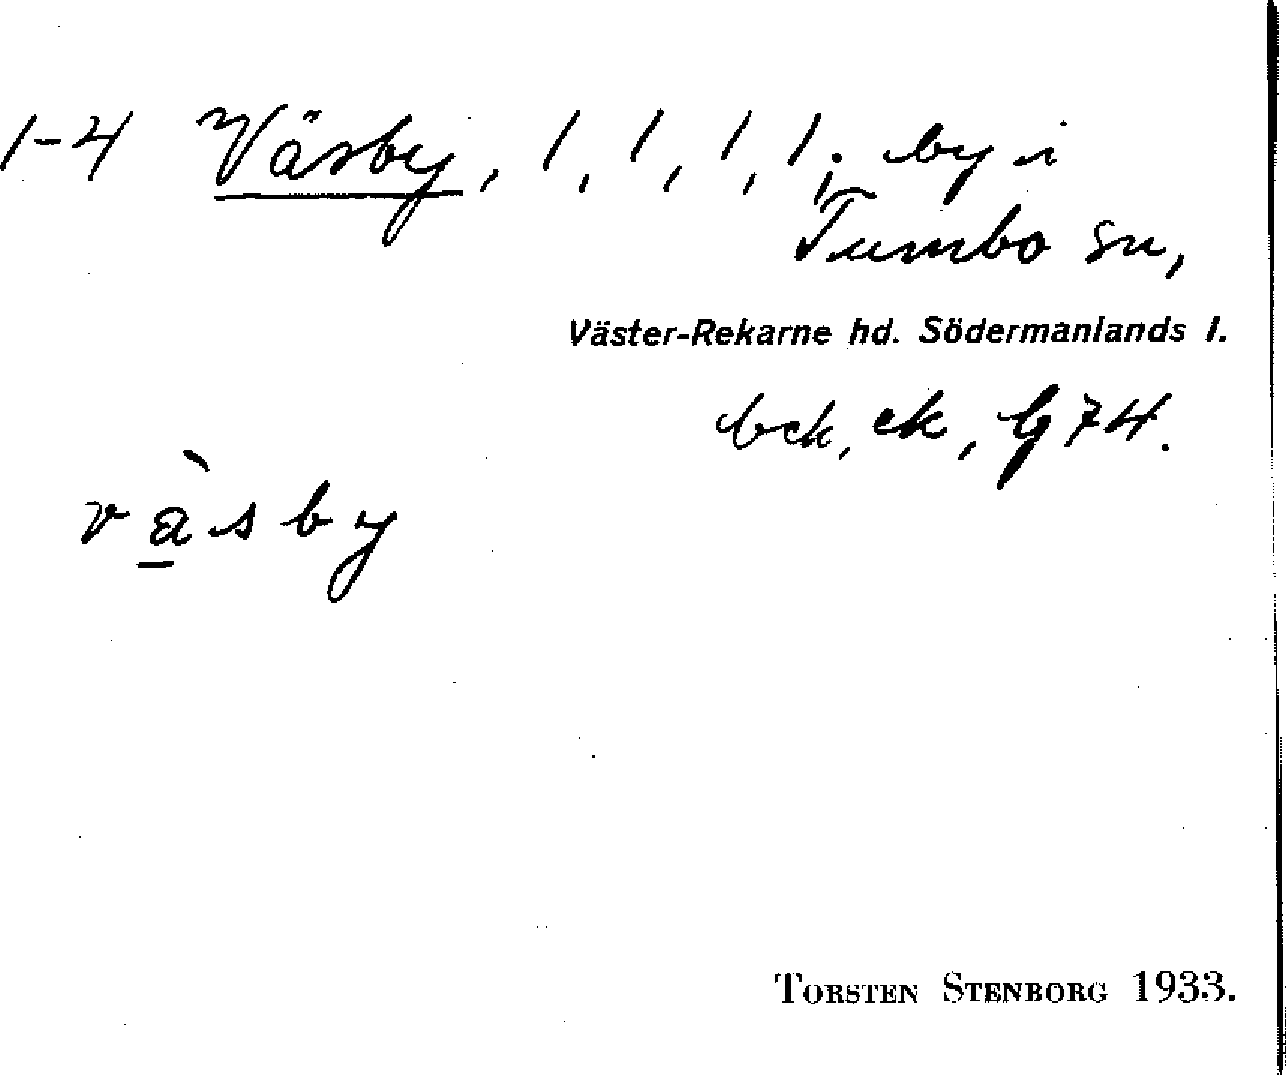 1-4 Väsby, 1, 1, 1, 1; by i
Tumbo sn,
Väster-Rekarne hd. Södermanlands l.
bck, ek, G 74.
và̱sby
TORSTEN STENBORG 1933.